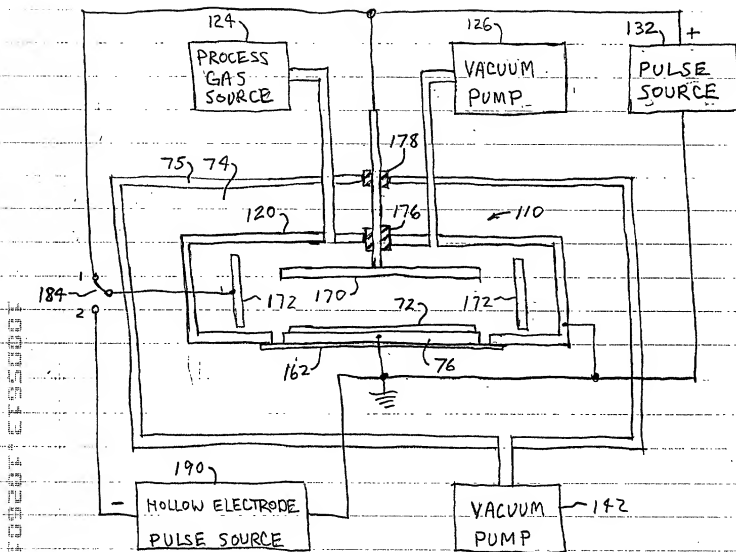 124
126
132
+
PROCESS
GAS
SOURCE
VACUUM
PUMP
PULSE
SOURCE
178
75
74
120
176
110
1
184
2
172
170
172
72
162
76
190
-
HOLLOW ELECTRODE
PULSE SOURCE
VACUUM
PUMP
142